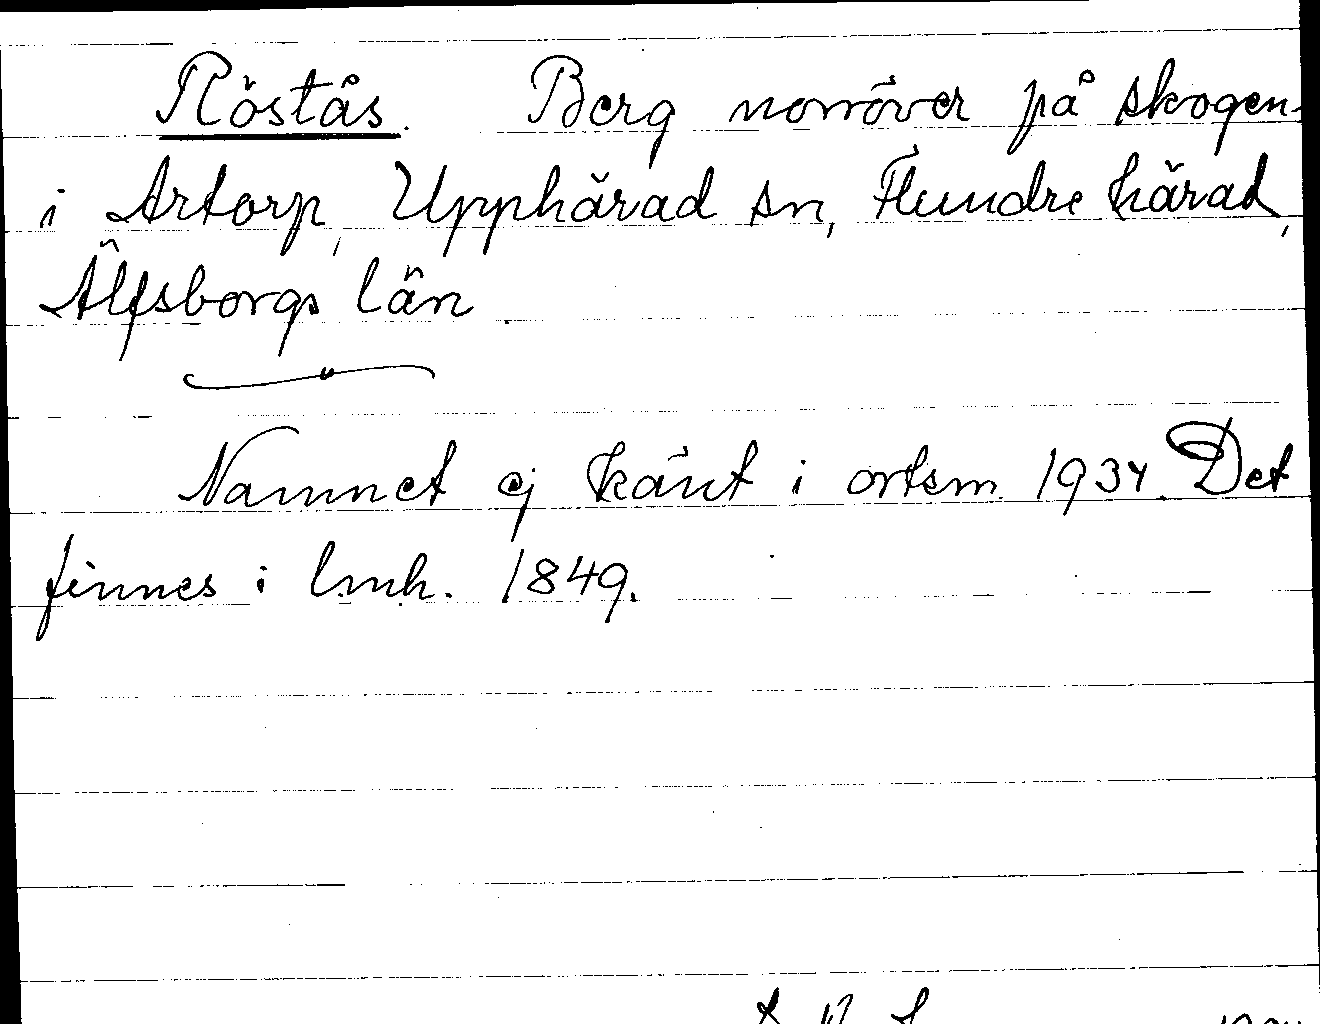 Röstås. Berg norröver på skogen
i Artorp, Upphärad sn, Flundre härad,
Älfsborgs län.
Namnet ej känt i ortsm. 1934. Det
finnes i lmh. 1849.